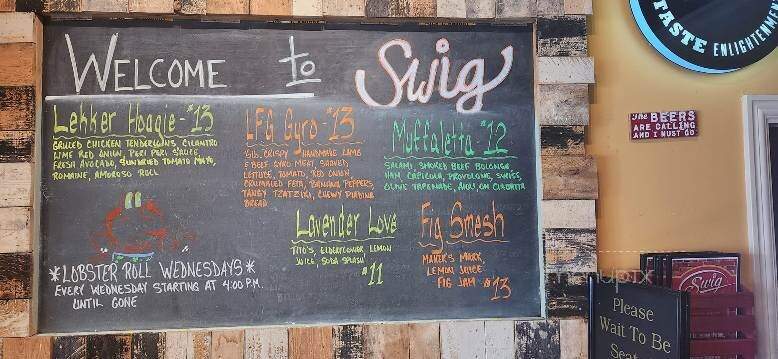 WELCOME to Swig
Lekker Hoagie - $13
GRILLED CHICKEN TENDERLOINS, CILANTRO
LIME RED ONION, PERI PERI SAUCE,
FRESH AVOCADO, SUNDRIED TOMATO MAYO,
ROMAINE, AMOROSO ROLL
LFG Gyro - $13
CRISPY HANDMADE LAMB
& BEEF GYRO MEAT, SHAVED
LETTUCE, TOMATO, RED ONION,
CRUMBLED FETA, BANANA PEPPERS,
TANGY TZATZIKI, CHEWY PIADINA
BREAD
Muffaletta $12
SALAMI, SMOKED BEEF BOLOGNA
HAM, CAPICOLA, PROVOLONE, SWISS,
OLIVE TAPENADE, AIOLI, ON CIABATTA
Lavender Love
TITO'S, ELDERFLOWER, LEMON
JUICE, SODA SPLASH
$11
Fig Smash
MAKER'S MARK,
LEMON JUICE
FIG JAM - $13
*LOBSTER ROLL WEDNESDAYS*
EVERY WEDNESDAY STARTING AT 4:00 P.M.
UNTIL GONE
TASTE ENLIGHTENMENT
The BEERS
ARE CALLING
AND I MUST GO
Swig
Please
Wait To Be
menupix